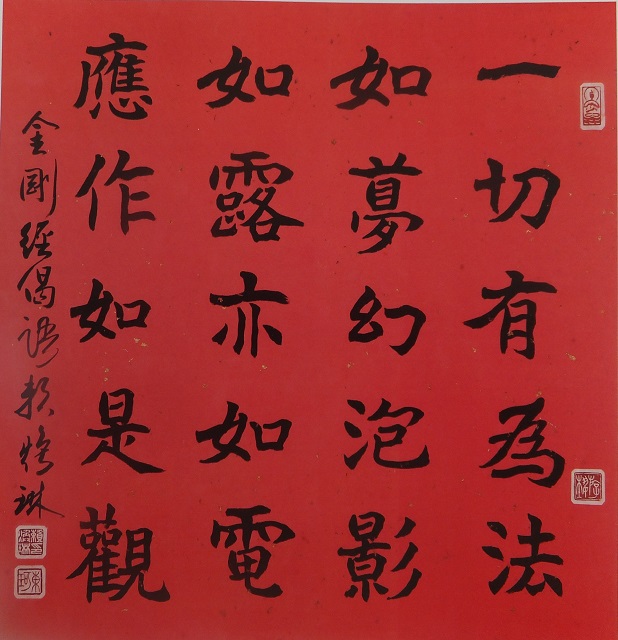 一切有為法
如夢幻泡影
如露亦如電
應作如是觀
金剛經偈語